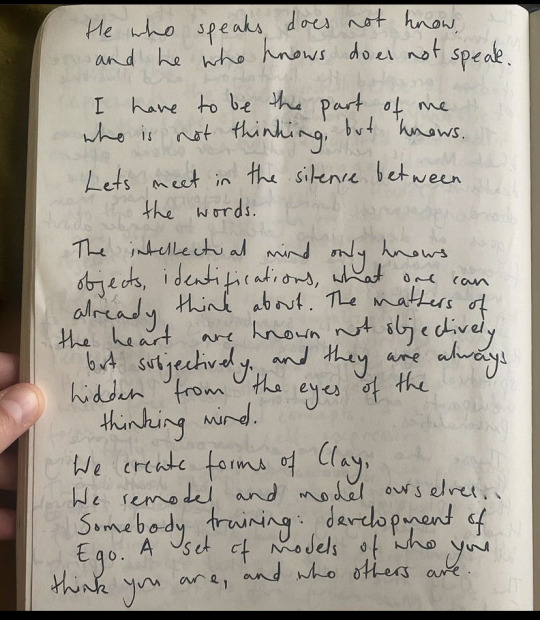 He who speaks, does not know,
and he who knows does not speak.
I have to be the part of me
who is not thinking, but knows.
Lets meet in the silence between
the words.
The intellectual mind only knows
objects, identifications, what one can
already think about. The matters of
the heart are known not objectively
but subjectively, and they are always
hidden from the eyes of the
thinking mind.
We create forms of Clay,
We remodel and model ourselves..
Somebody training: development of
Ego. A set of models of who you
think you are, and who others are.